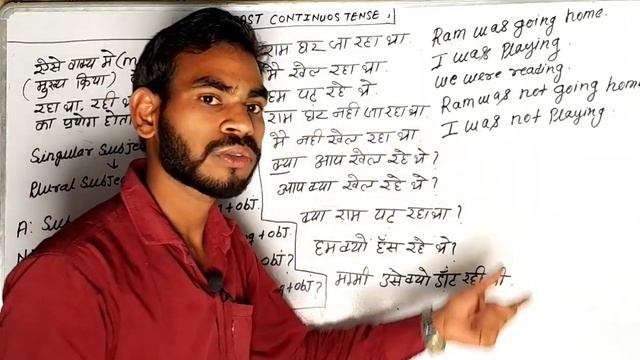 PAST CONTINUOS TENSE
ऐसे वाक्य में
(मुख्य क्रिया)
रहा था. रही
का प्रयोग होता
Singular Subje
↓
Plural Subje
A: Sub
+ obj.
ng + obj.
+ obj ?
ng + obj ?
राम घर जा रहा था.
मैं खेल रहा था.
हम पढ़ रहे थे
राम घर नहीं जा रहा था.
मैं नहीं खेल रहा था.
क्या आप खेल रहे थे ?
आप क्या खेल रहे थे ?
क्या राम पढ़ रहा था ?
हम क्यों हँस रहे थे ?
मम्मी उसे क्यों डाँट रही थी.
Ram was going home.
I was Playing.
We were reading.
Ram was not going home
I was not Playing.